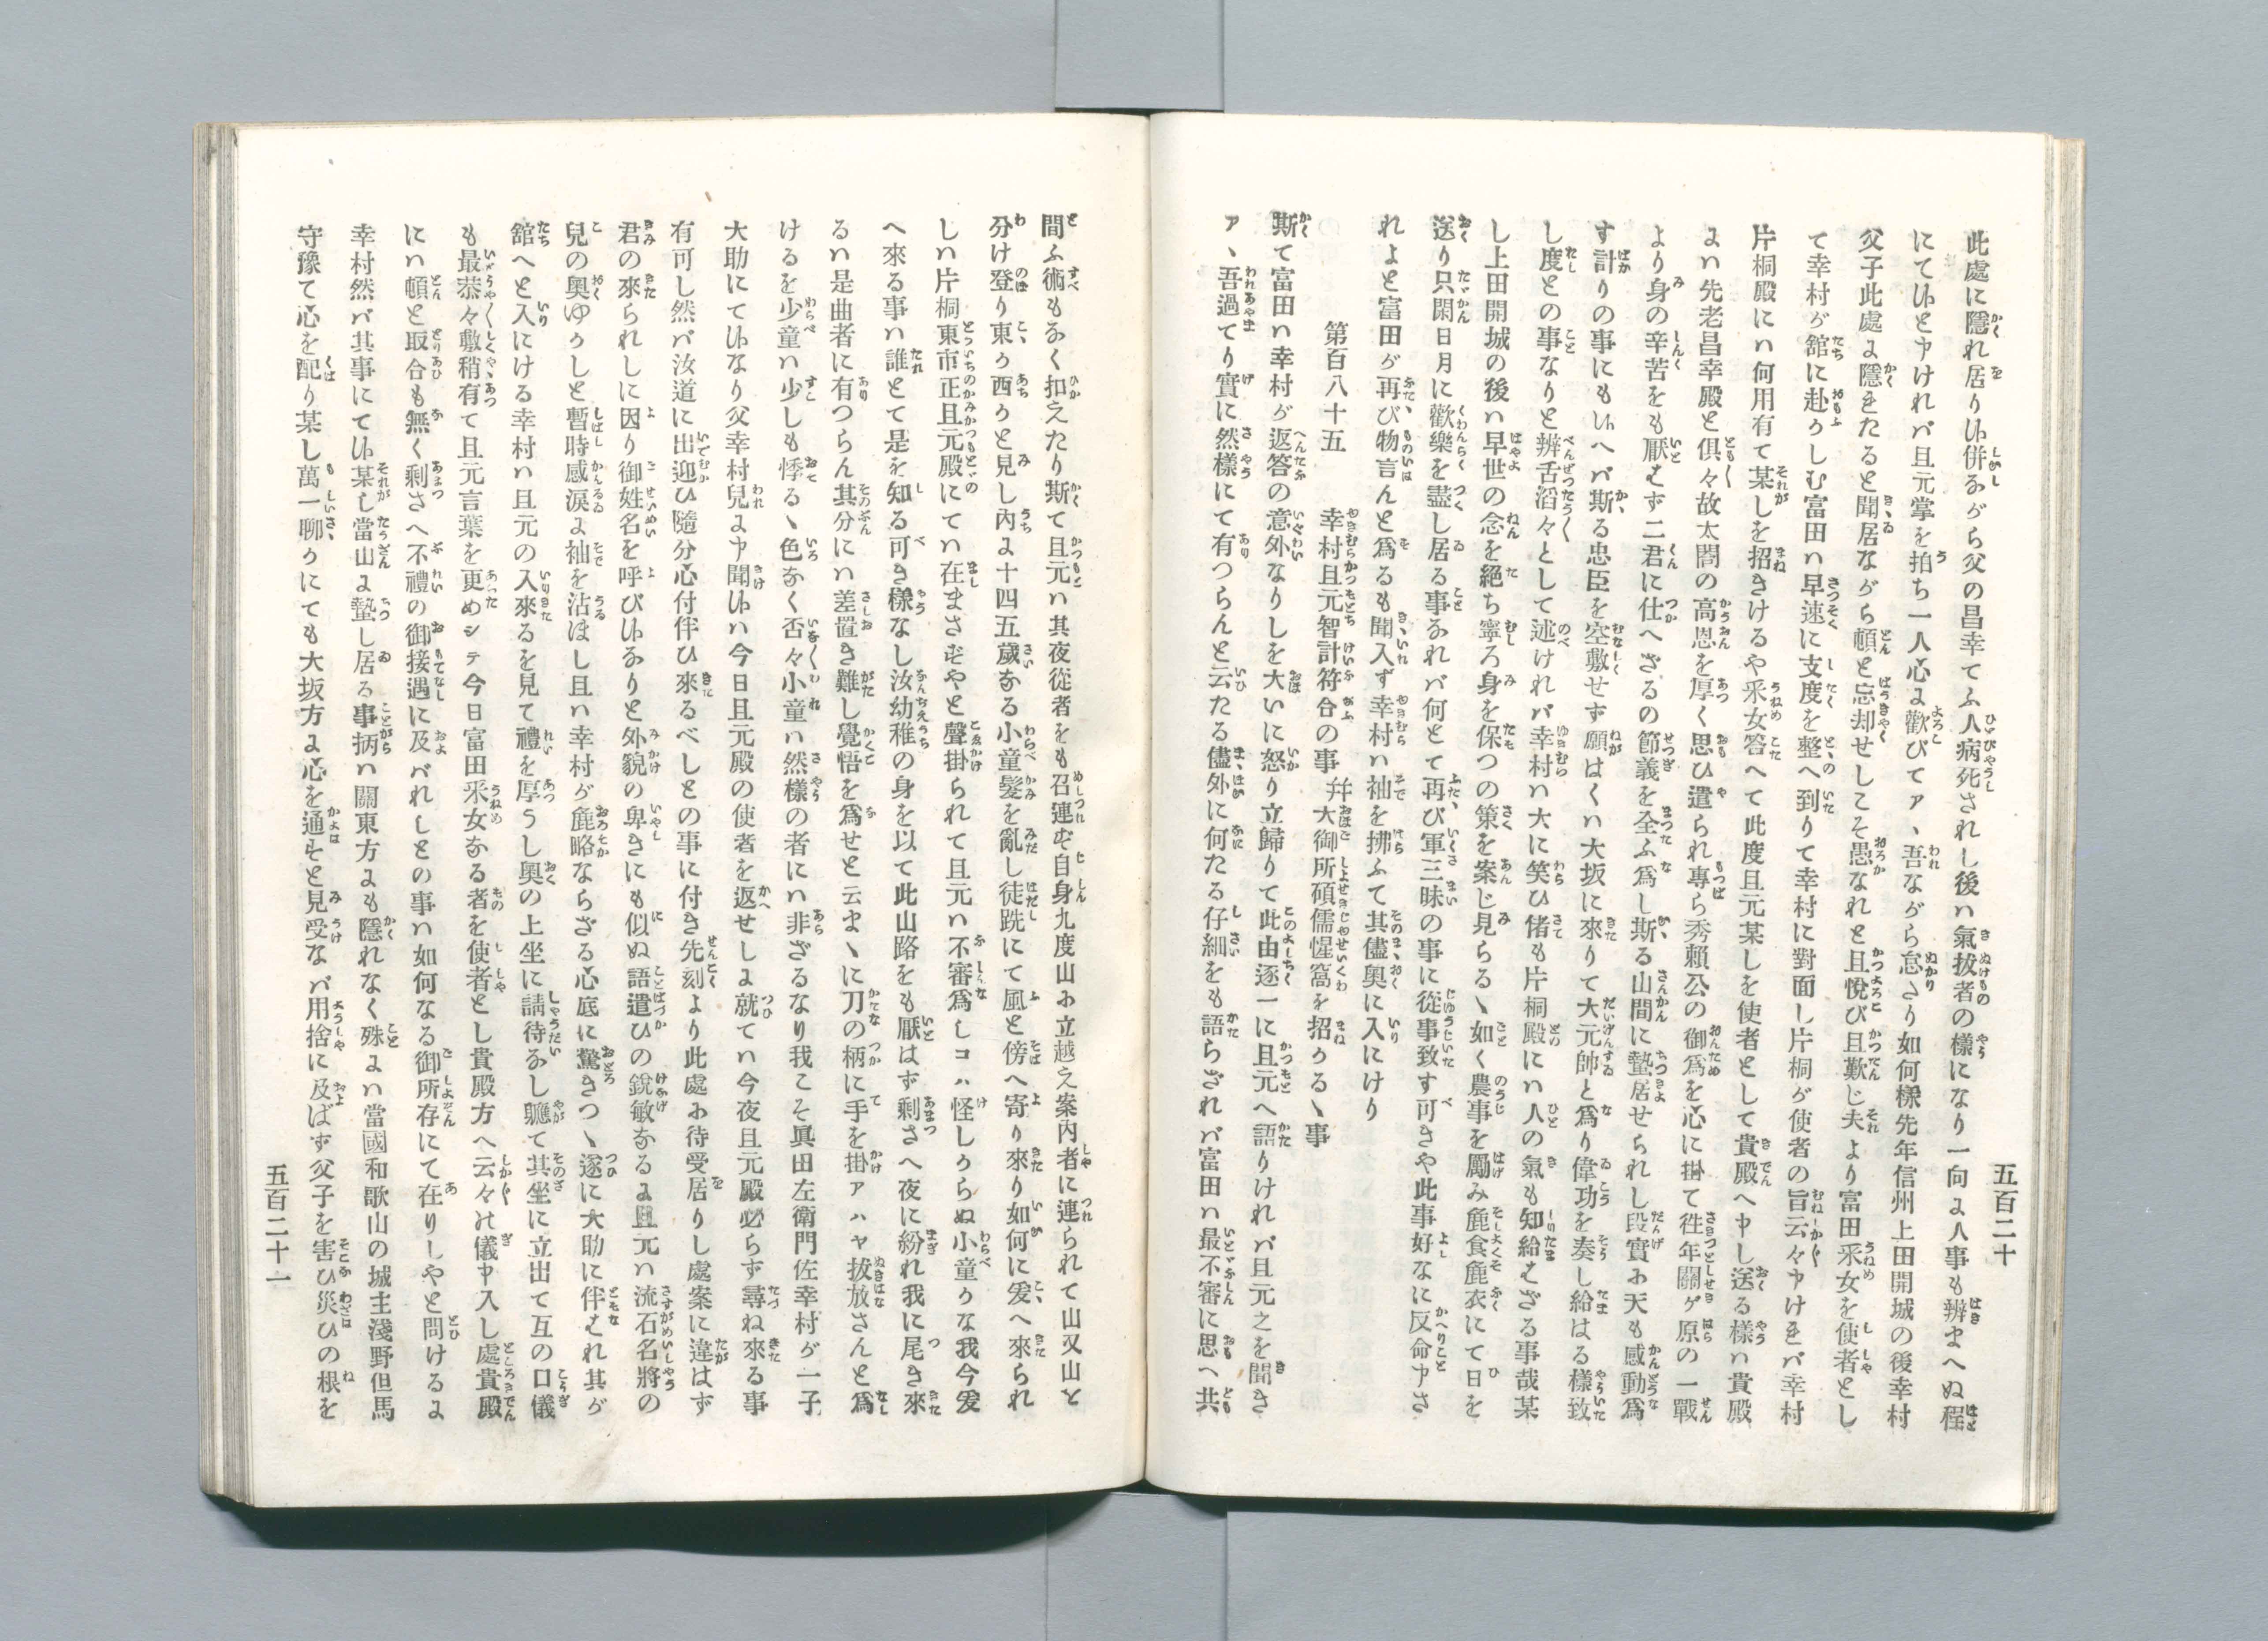 五百二十
此處に隱れ居り𛂞併ながら父の昌幸てふ人病死されし後ハ氣拔者の樣になり一向に人事も辨まへぬ程
にて候と申けれバ且元掌を拍ち一人心に歡びてア、吾ながら怠さり如何樣先年信州上田開城の後幸村
父子此處に隱れたると聞居ながら頓と忘却せしこそ愚なれと且悅び且歎じ夫より富田釆女を使者とし
て幸村が舘に赴かしむ富田ハ早速に支度を整へ到りて幸村に對面し片桐が使者の旨云々申けれバ幸村
片桐殿にハ何用有て某しを招きけるや釆女答へて此度且元某しを使者として貴殿へ申し送る樣ハ貴殿
にハ先老昌幸殿と俱々故太閤の高恩を厚く思ひ遣られ專ら秀賴公の御爲を心に掛て徃年關ヶ原の一戰
より身の辛苦をも厭はず二君に仕へざるの節義を全ふ爲し斯る山間に蟄居せられし段實に天も感動爲
す計りの事にも候へバ斯る忠臣を空敷せず願はくハ大坂に來りて大元帥と爲り偉功を奏し給はる樣致
し度との事なりと辨舌滔々として述けれバ幸村ハ大に笑ひ偖も片桐殿にハ人の氣も知給はざる事哉某
し上田開城の後ハ早世の念を絕ち寧ろ身を保つの策を案じ見らるゝ如く農事を勵み麁食麁衣にて日を
送り只閑日月に歡樂を盡し居る事なれバ何とて再び軍三昧の事に從事致す可きや此事好なに反命申さ
れよと富田が再び物言んと爲るも聞入ず幸村ハ袖を拂ふて其儘奧に入にけり
第百八十五　幸村且元智計符合の事　幷大御所碩儒惺窩を招かるゝ事
斯て富田ハ幸村が返答の意外なりしを大いに怒り立歸りて此由逐一に且元へ語りけれバ且元之を聞き
ア、吾過てり實に然樣にて有つらんと云たる儘外に何たる仔細をも語らざれバ富田ハ最不審に思へ共
問ふ術もなく扣えたり斯て且元ハ其夜從者をも召連ず自身九度山に立越え案內者に連られて山又山と
分け登り東か西かと見し內に十四五歲なる小童髮を亂し徒跣にて風と傍へ寄り來り如何に爰へ來られ
しハ片桐東市正且元殿にてハ在まさずやと聲掛られて且元ハ不審爲しコハ怪しからぬ小童かな我今爰
へ來る事ハ誰とて是を知る可き樣なし汝幼稚の身を以て此山路をも厭はず剩さへ夜に紛れ我に尾き來
るハ是曲者に有つらん其分にハ差置き難し覺悟を爲せと云まゝに刀の柄に手を掛アハヤ拔放さんと爲
けるを少童ハ少しも悸るゝ色なく否々小童ハ然樣の者にハ非ざるなり我こそ眞田左衛門佐幸村が一子
大助にて候なり父幸村兒に申聞候ハ今日且元殿の使者を返せしに就てハ今夜且元殿必らず尋ね來る事
有可し然バ汝道に出迎ひ隨分心付伴ひ來るべしとの事に付き先刻より此處に待受居りし處案に違はず
君の來られしに因り御姓名を呼び候なりと外貌の卑きにも似ぬ語遣ひの銳敏なるに且元ハ流石名將の
兒の奧ゆかしと暫時感淚に袖を沾ほし且ハ幸村が麁略ならざる心底に驚きつゝ遂に大助に伴はれ其が
舘へと入にける幸村ハ且元の入來るを見て禮を厚うし奧の上坐に請待なし軈て其坐に立出て互の口儀
も最恭々敷稍有て且元言葉を更めシテ今日富田釆女なる者を使者とし貴殿方へ云々の儀申入し處貴殿
にハ頓と取合も無く剩さへ不禮の御接遇に及バれしとの事ハ如何なる御所存にて在りしやと問けるに
幸村然バ其事にて候某し當山に蟄し居る事柄ハ關東方にも隱れなく殊にハ當國和歌山の城主淺野但馬
守豫て心を配り某し萬一聊かにても大坂方に心を通はすと見受なバ用捨に及ばず父子を害ひ災ひの根を
五百二十一